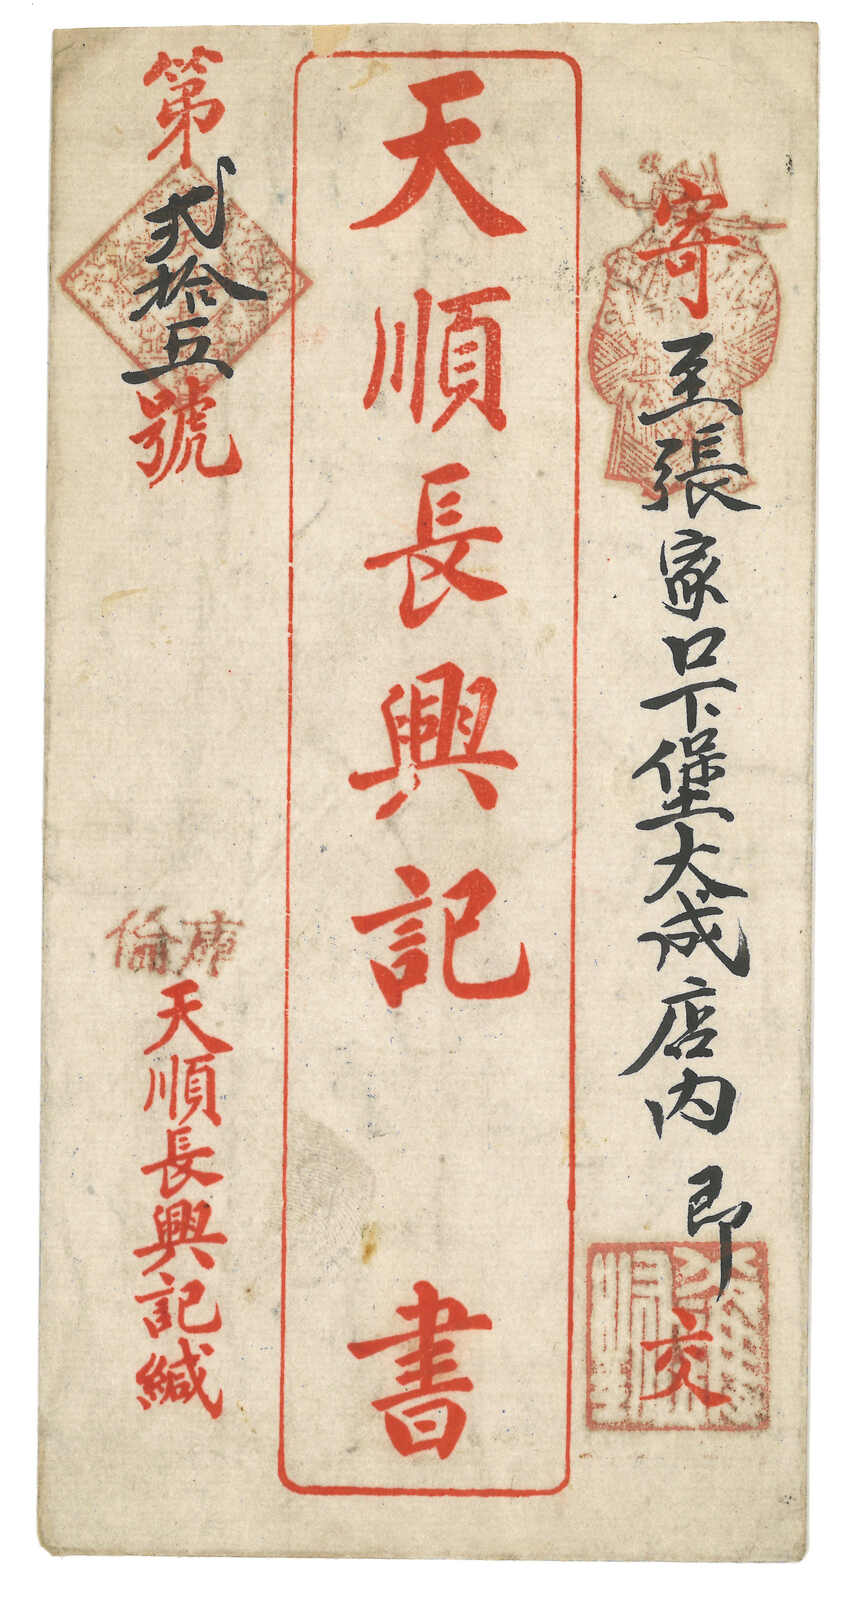 寄至張家口下堡大成店内即交
天順長興記書
第貳拾五號
庫倫
天順長興記緘